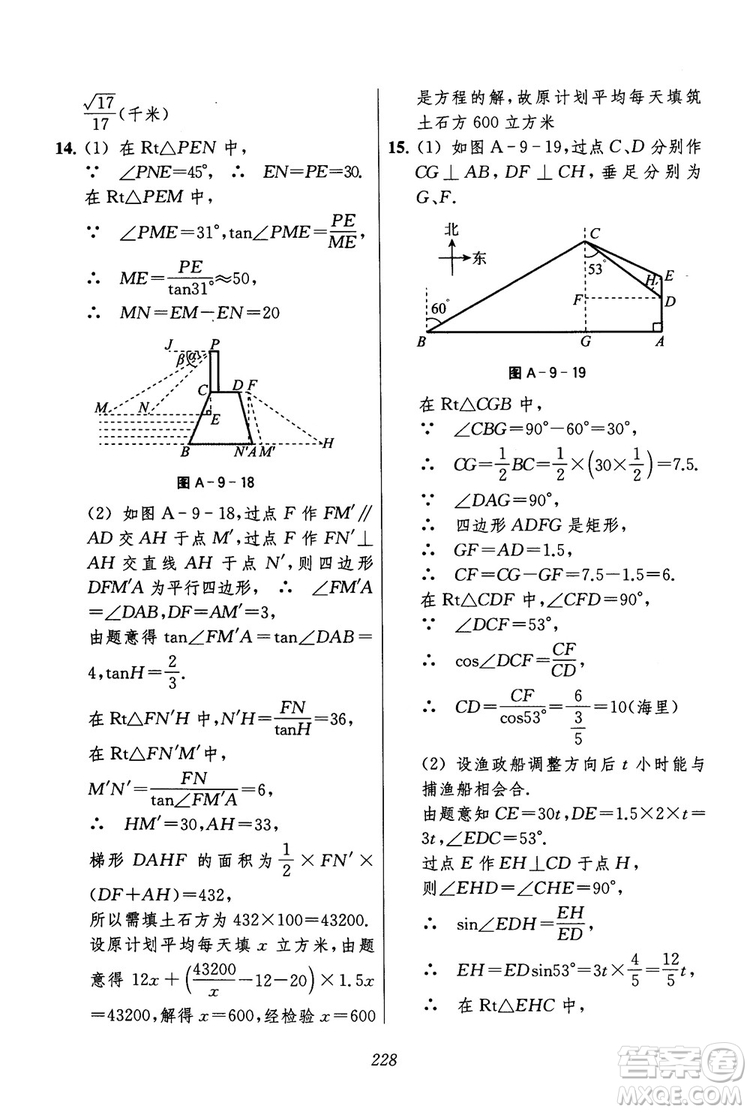 √17/17(千米)
14. (1) 在 Rt△PEN 中,
∵ ∠PNE=45°, ∴ EN=PE=30.
在 Rt△PEM 中,
∵ ∠PME=31°, tan∠PME=PE/ME,
∴ ME=PE/tan31°≈50,
∴ MN=EM-EN=20
J P
β α
C D F
M N E
B N′ A M′ H
图 A-9-18
(2) 如图 A-9-18,过点 F 作 FM′∥
AD 交 AH 于点 M′,过点 F 作 FN′⊥
AH 交直线 AH 于点 N′,则四边形
DFM′A 为平行四边形, ∴ ∠FM′A
=∠DAB,DF=AM′=3,
由题意得 tan∠FM′A=tan∠DAB=
4,tanH=2/3.
在 Rt△FN′H 中,N′H=FN/tanH=36,
在 Rt△FN′M′ 中,
M′N′=FN/tan∠FM′A=6,
∴ HM′=30,AH=33,
梯形 DAHF 的面积为 1/2×FN′×
(DF+AH)=432,
所以需填土石方为 432×100=43200.
设原计划平均每天填 x 立方米,由题
意得 12x+(43200/x-12-20)×1.5x
=43200,解得 x=600,经检验 x=600
是方程的解,故原计划平均每天填筑
土石方 600 立方米
15. (1) 如图 A-9-19,过点 C、D 分别作
CG⊥AB,DF⊥CH,垂足分别为
G、F.
北
东
C
53°
H E
F D
60°
B G A
图 A-9-19
在 Rt△CGB 中,
∵ ∠CBG=90°-60°=30°,
∴ CG=1/2BC=1/2×(30×1/2)=7.5.
∵ ∠DAG=90°,
∴ 四边形 ADFG 是矩形,
∴ GF=AD=1.5,
∴ CF=CG-GF=7.5-1.5=6.
在 Rt△CDF 中,∠CFD=90°,
∵ ∠DCF=53°,
∴ cos∠DCF=CF/CD,
∴ CD=CF/cos53°=6/(3/5)=10(海里)
(2) 设渔政船调整方向后 t 小时能与
捕渔船相会合.
由题意知 CE=30t,DE=1.5×2×t=
3t,∠EDC=53°.
过点 E 作 EH⊥CD 于点 H,
则∠EHD=∠CHE=90°,
∴ sin∠EDH=EH/ED,
∴ EH=EDsin53°=3t×4/5=12/5t,
∴ 在 Rt△EHC 中,
228
答案圈
MXQE.COM